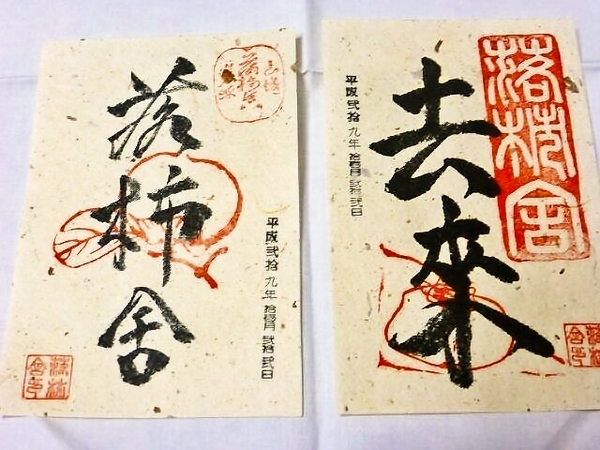 落柿舎
平成弐拾九年 拾壱月 弐拾弐日
落柿舎印
落柿舎
去來
平成弐拾九年 拾壱月 弐拾弐日
落柿舎印